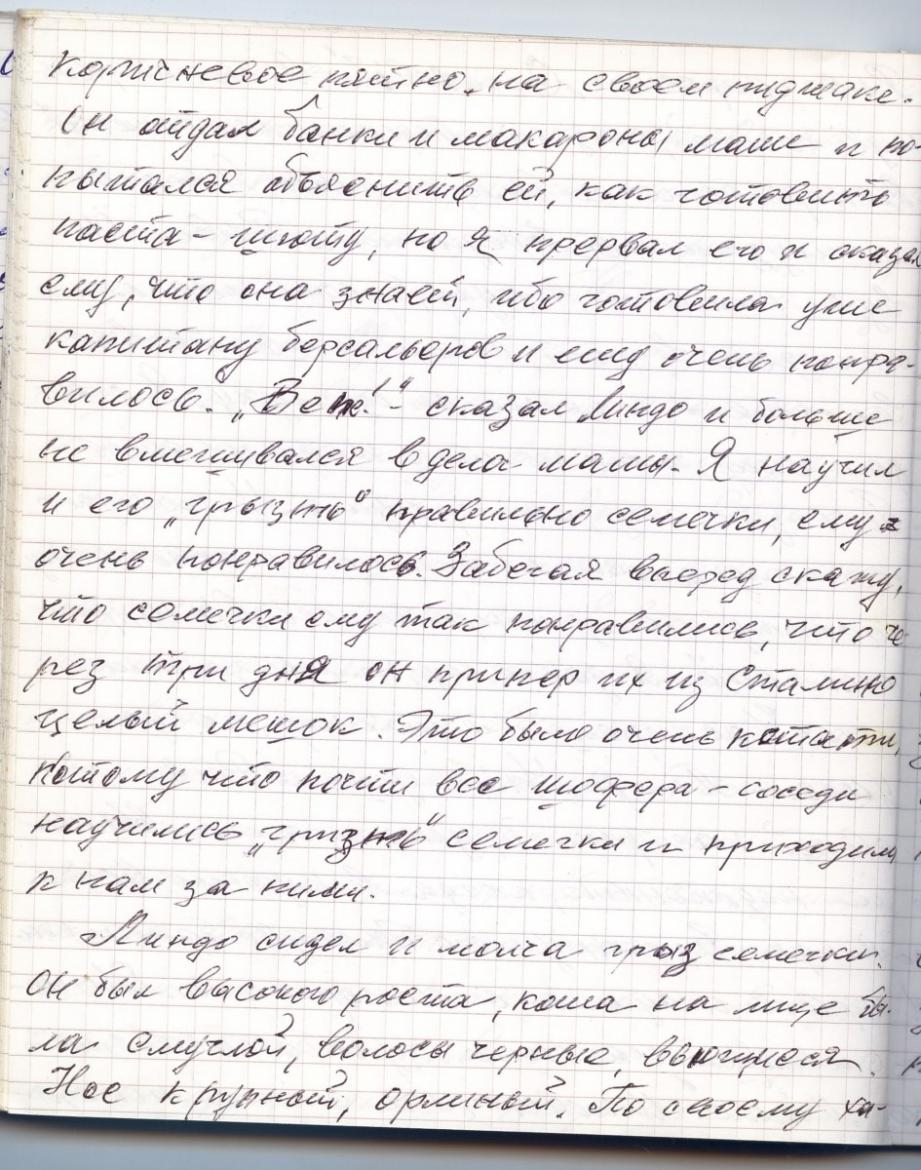 коричневое пятно на своем пиджаке.
Он отдал банки и макароны маме и по-
пытался объяснить ей, как готовить
паста-шюту, но я прервал его и сказал
ему, что она знает, ибо готовила уже
капитану берсальеров и ему очень понра-
вилось. „Бене!" - сказал Линдо и больше
не вмешивался в дела мамы. Я научил
и его „грызть" правильно семечки, ему
очень понравилось. Забегая вперед скажу,
что семечки ему так понравились, что че-
рез три дня он припер их из Сталино
целый мешок. Это было очень кстати,
потому что почти все шофера-соседи
научились „грызть" семечки и приходили
к нам за ними.
Линдо сидел и молча грыз семечки.
Он был высокого роста, кожа на лице бы-
ла смуглой, волосы черные, вьющиеся.
Нос крупный, орлиный. По своему ха-